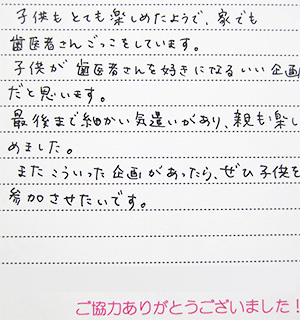 子供もとても楽しめたようで、家でも
歯医者さんごっこをしています。
子供が歯医者さんを好きになるいい企画
だと思います。
最後まで細かい気遣いがあり、親も楽し
めました。
またこういった企画があったら、ぜひ子供を
参加させたいです。
ご協力ありがとうございました！